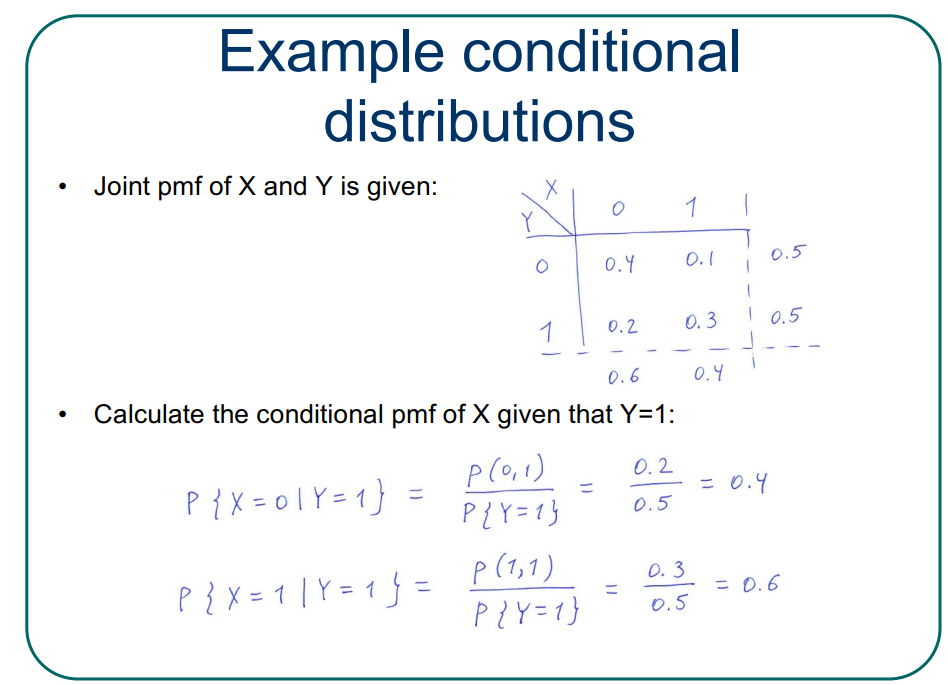 Example conditional
distributions
• Joint pmf of X and Y is given:
X
Y 0 1
0 0.4 0.1 0.5
1 0.2 0.3 0.5
0.6 0.4
• Calculate the conditional pmf of X given that Y=1:
P{X=0|Y=1} = p(0,1) / P{Y=1} = 0.2 / 0.5 = 0.4
P{X=1|Y=1} = p(1,1) / P{Y=1} = 0.3 / 0.5 = 0.6